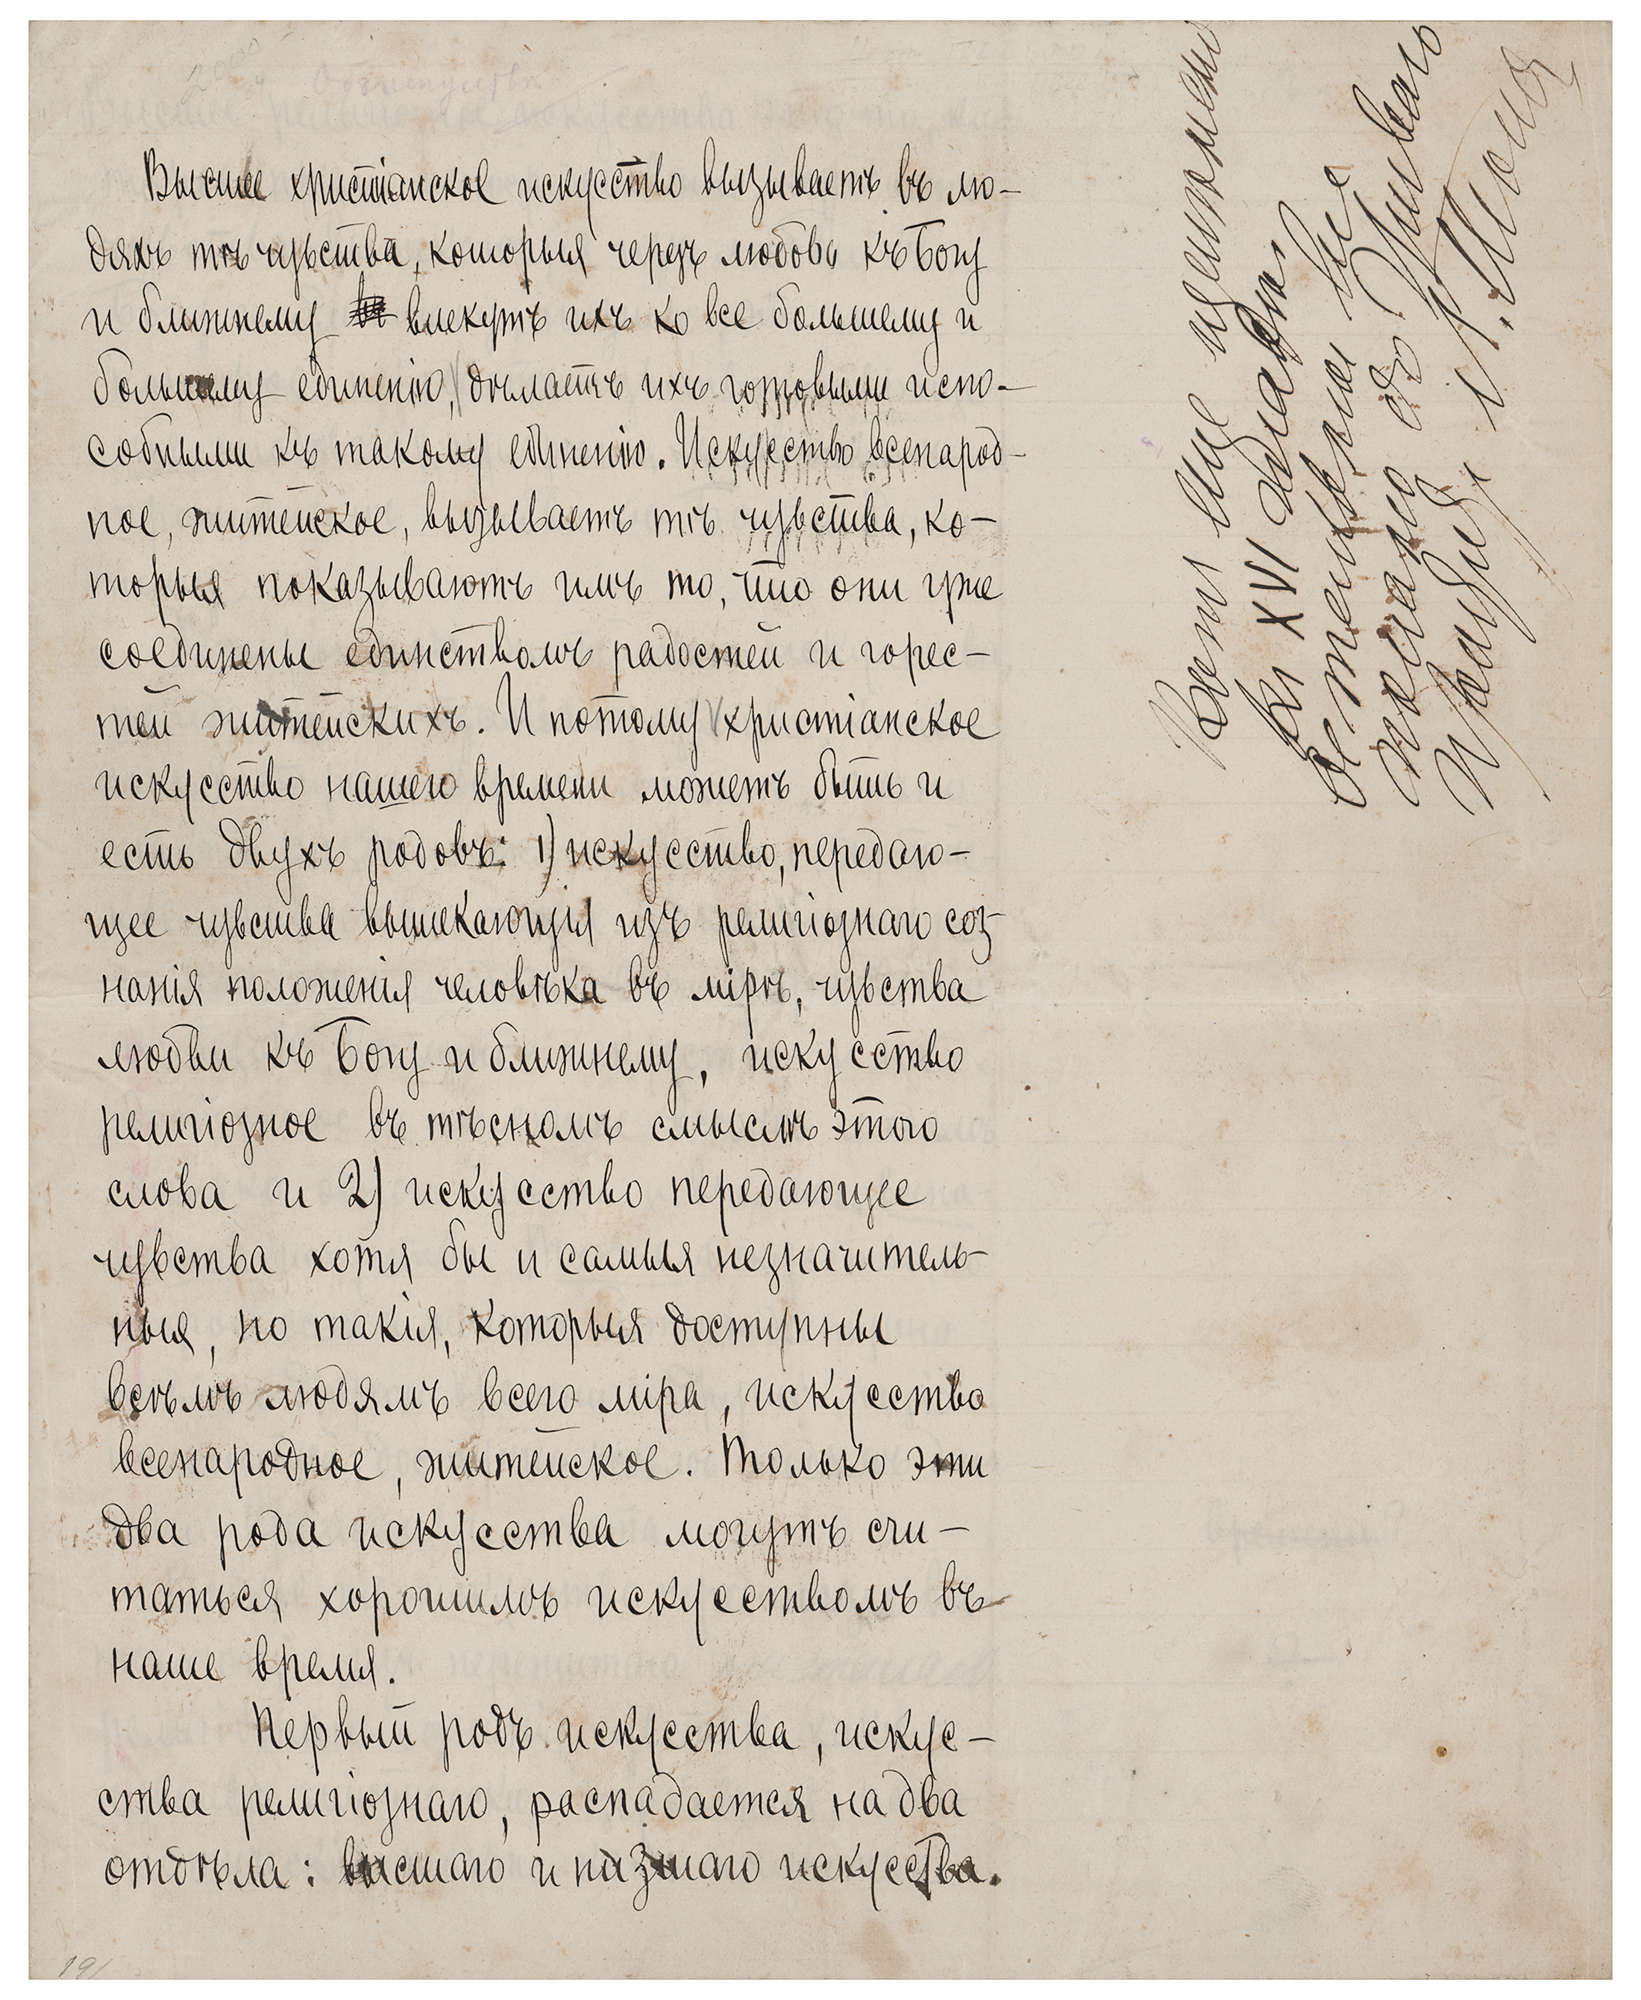 Высшее христіанское искусство вызываетъ въ лю-
дяхъ тѣ чувства, которыя черезъ любовь къ Богу
и ближнему влекутъ ихъ ко все большему и
большему единенію, дѣлаетъ ихъ готовыми и спо-
собными къ такому единенію. Искусство всенарод-
ное, житейское, вызываетъ тѣ чувства, ко-
торыя показываютъ имъ то, что они уже
соединены единствомъ радостей и горес-
тей житейскихъ. И потому христіанское
искусство нашего времени можетъ быть и
есть двухъ родовъ: 1) искусство, передаю-
щее чувства вытекающія изъ религіознаго соз-
нанія положенія человѣка въ мірѣ, чувства
любви къ Богу и ближнему, искусство
религіозное въ тѣсномъ смыслѣ этого
слова и 2) искусство передающее
чувства хотя бы и самыя незначитель-
ныя, но такія, которыя доступны
всѣмъ людямъ всего міра, искусство
всенародное, житейское. Только эти
два рода искусства могутъ счи-
таться хорошимъ искусствомъ въ
наше время.
Первый родъ искусства, искус-
ства религіознаго, распадается на два
отдѣла: высшаго и низшаго искусства.
Вотъ еще
въ XVI
желало
191